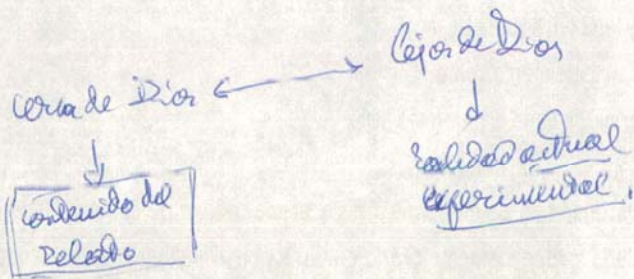 cerca de Dios
Lejos de Dios
contenido del
Relato
realidad actual
experimental.